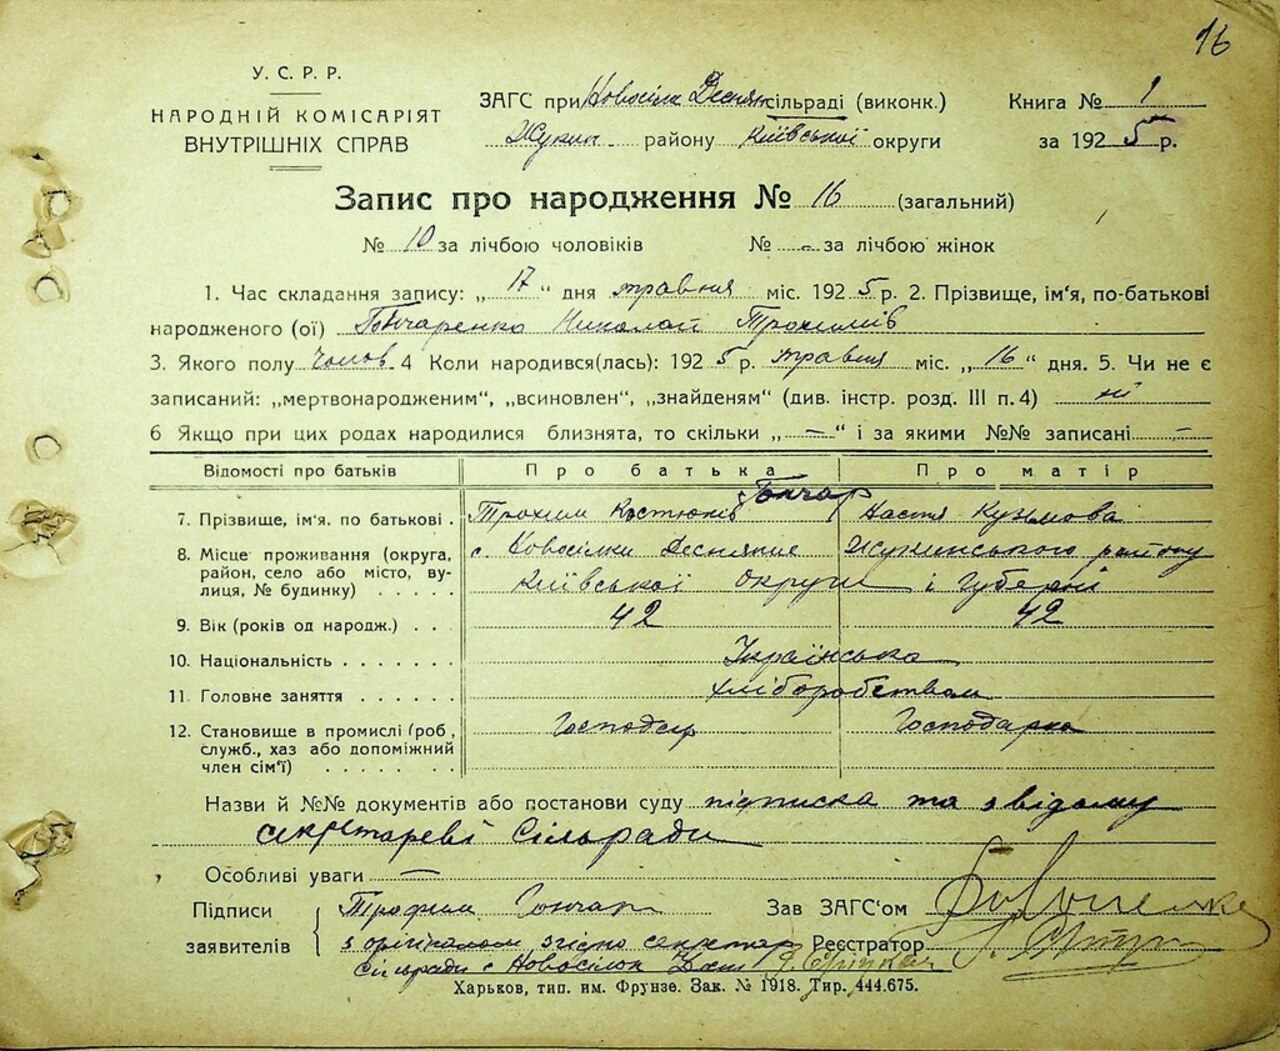 16
У. С. Р. Р.
НАРОДНІЙ КОМІСАРІЯТ
ВНУТРІШНІХ СПРАВ
ЗАГС при Новосілк Деснян сільраді (виконк.)
Жукин району Київської округи
Книга № 1
за 1925 р.
Запис про народження № 16 (загальний)
№ 10 за лічбою чоловіків № - за лічбою жінок
1. Час складання запису: „ 17 “ дня травня міс. 1925 р. 2. Прізвище, ім'я, по-батькові
народженого (ої) Гончаренко Николай Трохимів
3. Якого полу Чолов. 4 Коли народився(лась): 1925 р. травня міс. „ 16 “ дня. 5. Чи не є
записаний: „мертвонародженим“, „всиновлен“, „знайденям“ (див. інстр. розд. III п. 4) ні
6 Якщо при цих родах народилися близнята, то скільки „ — “ і за якими №№ записані —
Відомості про батьків Про батька Про матір
Гончар
7. Прізвище, ім'я. по батькові . Трохим Костюків Настя Кузьмова
8. Місце проживання (округа, с Новосілки Деснянські Жукинського району
район, село або місто, ву-
лиця, № будинку) . . . . . Київської округи і Губерні
9. Вік (років од народж.) . . 42 42
10. Національність . . . . . . . Українська
11. Головне заняття . . . . . . хліборобством
12. Становище в промислі (роб., Господар Господарка
служб., хаз або допоміжний
член сім'ї) . . . . . . .
Назви й №№ документів або постанови суду підписка та звідому
секретареві Сільради
Особливі уваги —
Підписи
заявителів
Трофим Гончар
Зав ЗАГС'ом
з орігіналом згідно секретар Реєстратор
Сільради с Новосілок Десн
Харьков, тип. им. Фрунзе. Зак. № 1918. Тир. 444.675.